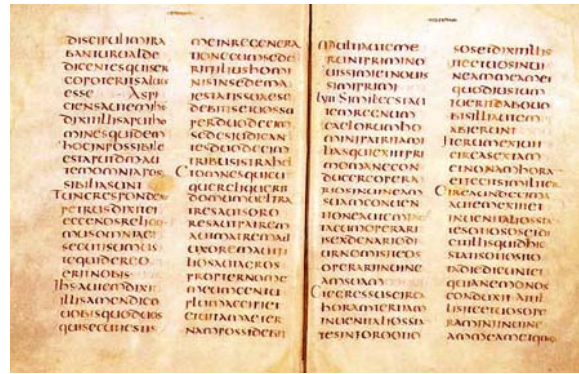 discipuli mira
bantur ualde
dicentes quis er
go poterit saluu
esse Aspi
ciens autem ihs
dixit illis apud ho
mines quidem
hoc inpossibile
est apud dm au
tem omnia pos
sibilia sunt
Tunc responde
petrus dixit ei
ecce nos reliqui
mus omnia et
secuti sumus
te quid ergo
erit nobis
Ihs autem dixit
illis amen dico
uobis quod uos
qui secuti estis
me in regenera
tione cum sede
rit filius homi
nis in sede ma
iestatis suae se
debitis et uos su
per duodecim
sedes iudican
tes duodecim
tribus istrahel
Et omnes qui cu
que reliquerit
domum uel fra
tres aut soro
res aut patrem
aut matrem aut
uxorem aut fi
lios aut agros
propter nome
meum centu
plum accipiet
et uitam aeter
nam possidebit
Multi autem e
runt primi no
uissimi et nouis
simi primi
Simile est au
tem regnum
caelorum ho
mini patri fami
lias qui exiit pri
mo mane con
ducere opera
rios in uineam
suam conuen
tione autem
facta cum operari
is ex denario di
urno misit eos
operari in uine
am suam
Et egressus circa
horam tertiam
inuenit alios sta
tes in foro otio
sos et dixit illis
ite et uos in ui
neam meam et
quod iustum
fuerit dabo uo
bis illi autem
abierunt
Iterum exiit
circa sextam
et nonam hora
et fecit similiter
Circa undecima
autem exiit et
inuenit alios sta
tes otiosos et di
cit illis quid hic
statis otiosi to
ta die dicunt ei
quia nemo nos
conduxit ait il
lis ite et uos ope
ramini in uine